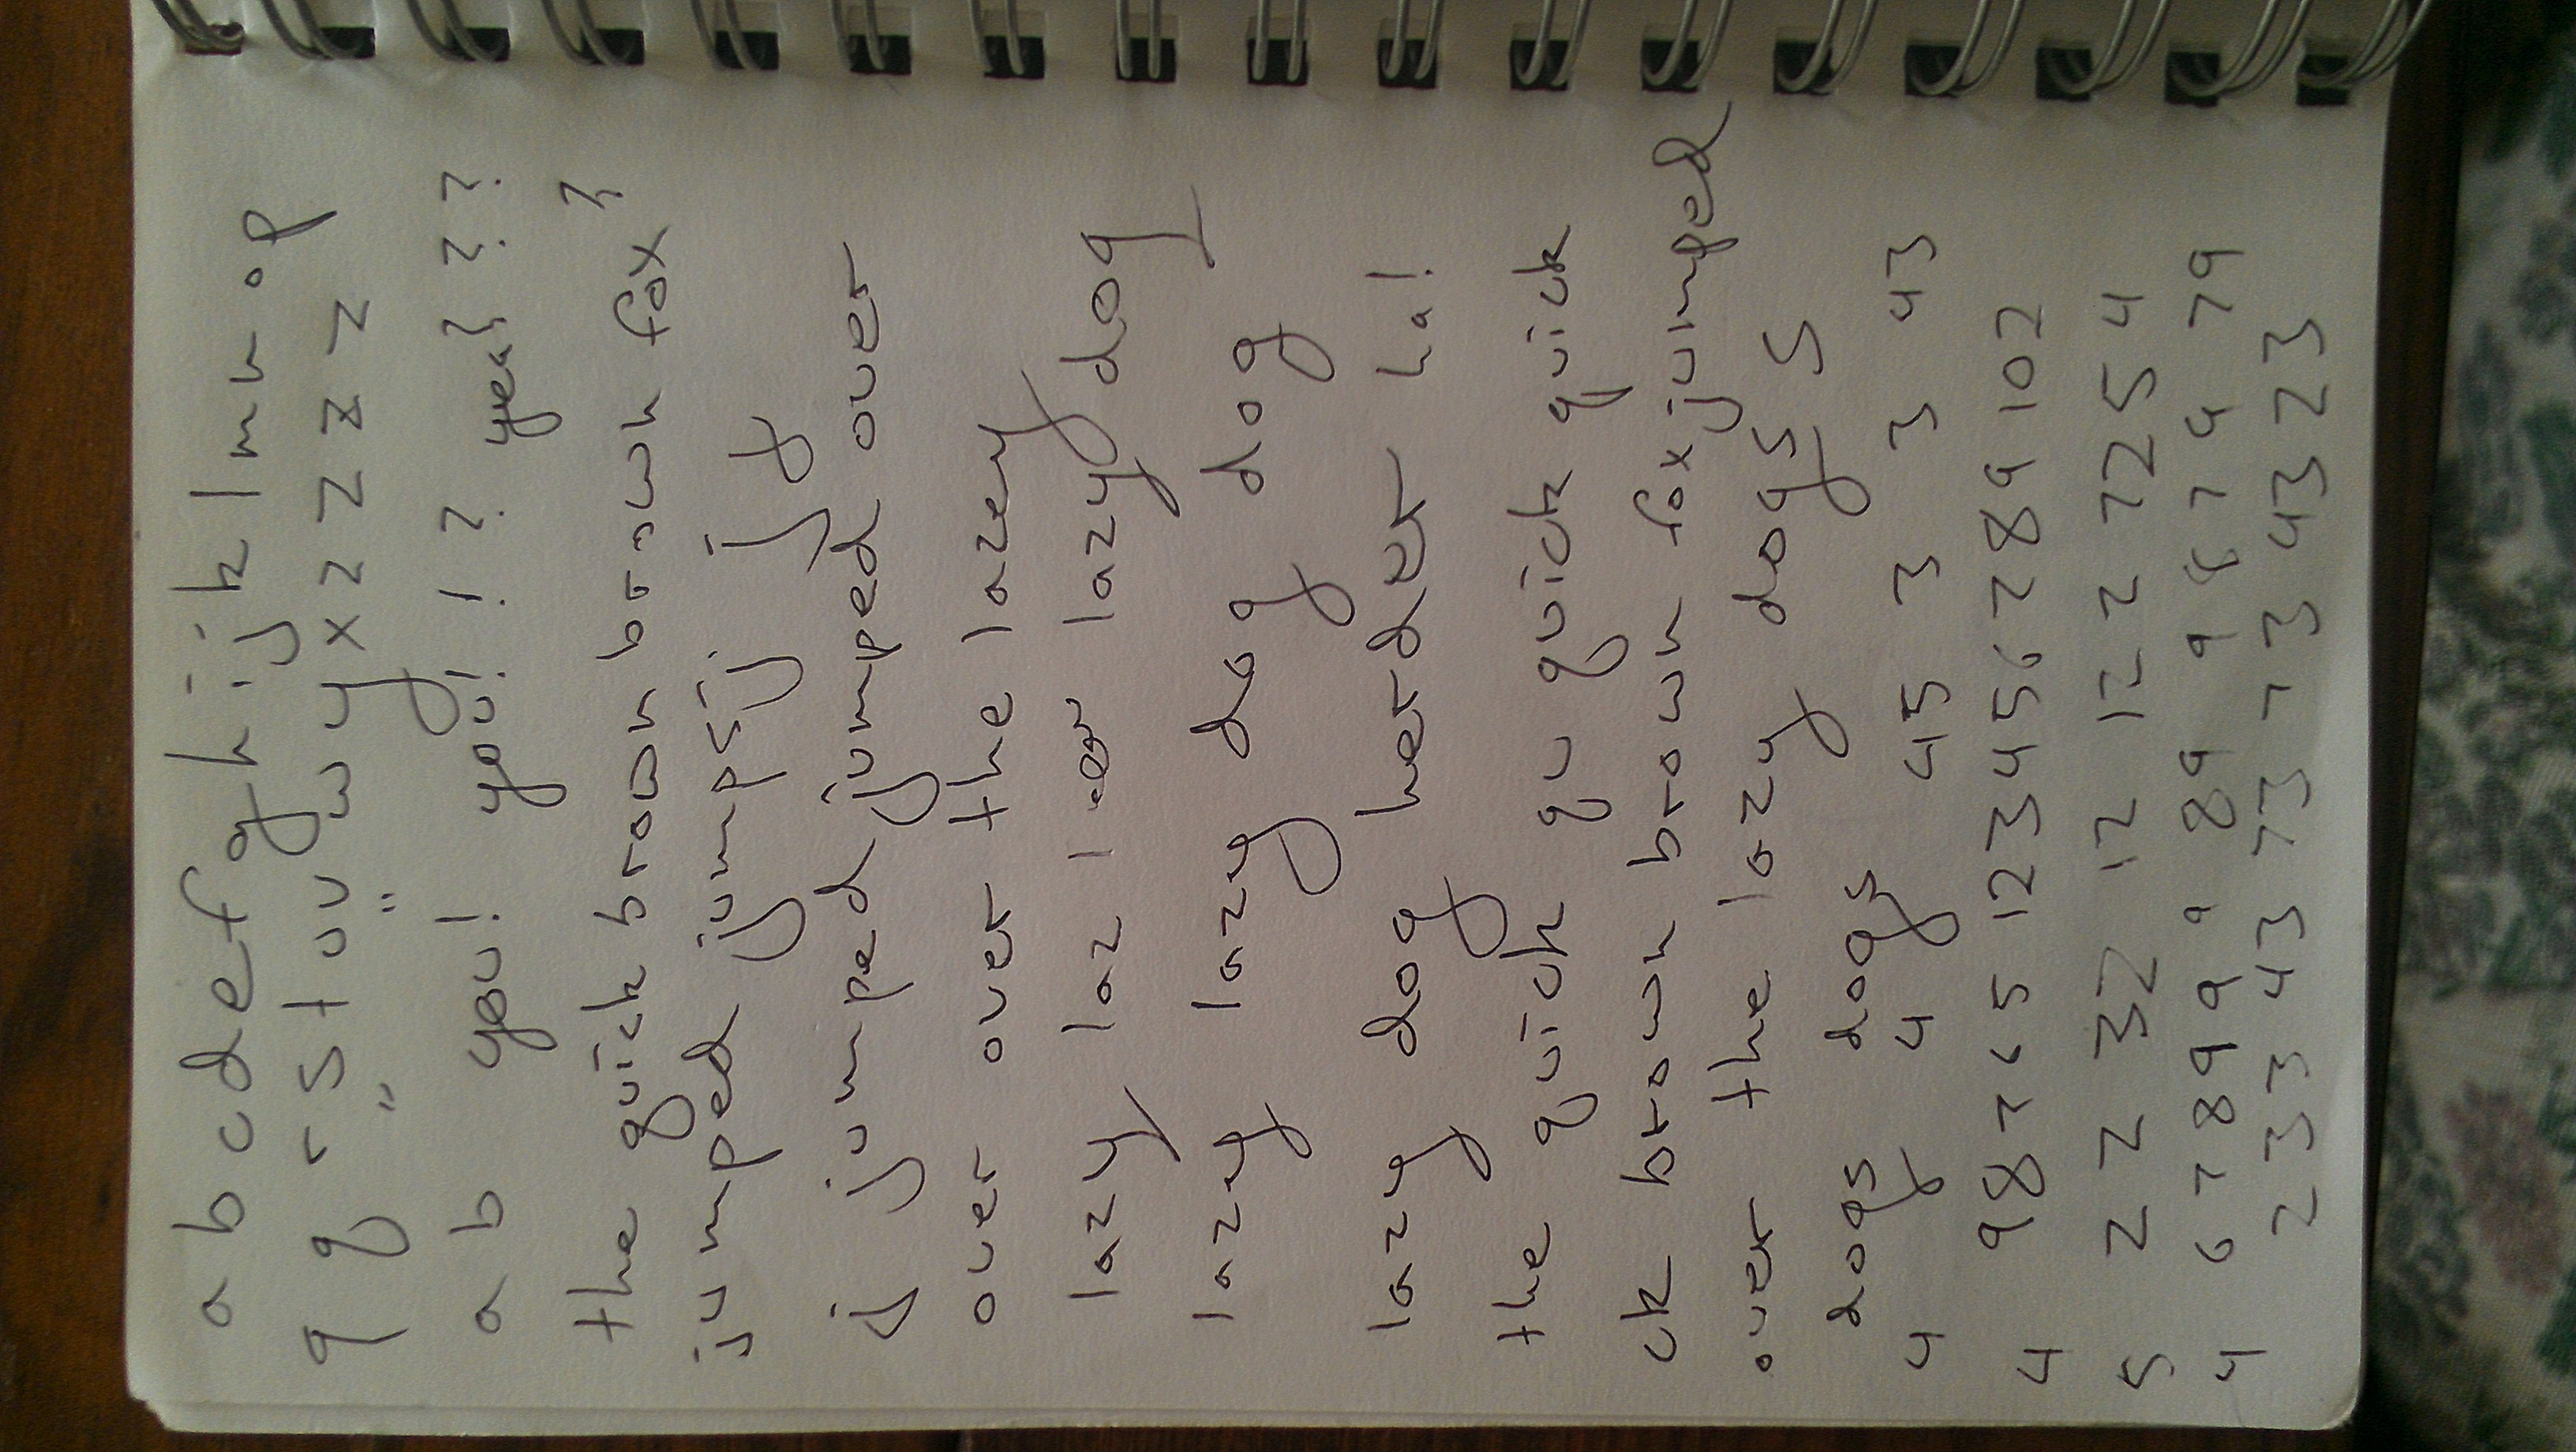 a b c d e f g h i j k l m n o p
q q r s t u v w y x z z z z
" "
a b you! you! ! ? yea? ? ?
the quick brown brown fox ?
jumped jumpsjj j j
jj jumped jjumped over
over over the lazey
lazy laz l lazy dog
lazy lazy dog dog
lazy dog herder ha!
the quick qu quick quick
ck brown brown fox jumped
over the lazy dogs s
dogs dogs
4 4 45 3 3 43
4 98765 12345678910 2
5 2 2 32 12 12 2 7254
4 6789 9 9 89 9 8 7 4 79
2 3 3 43 73 73 43 23